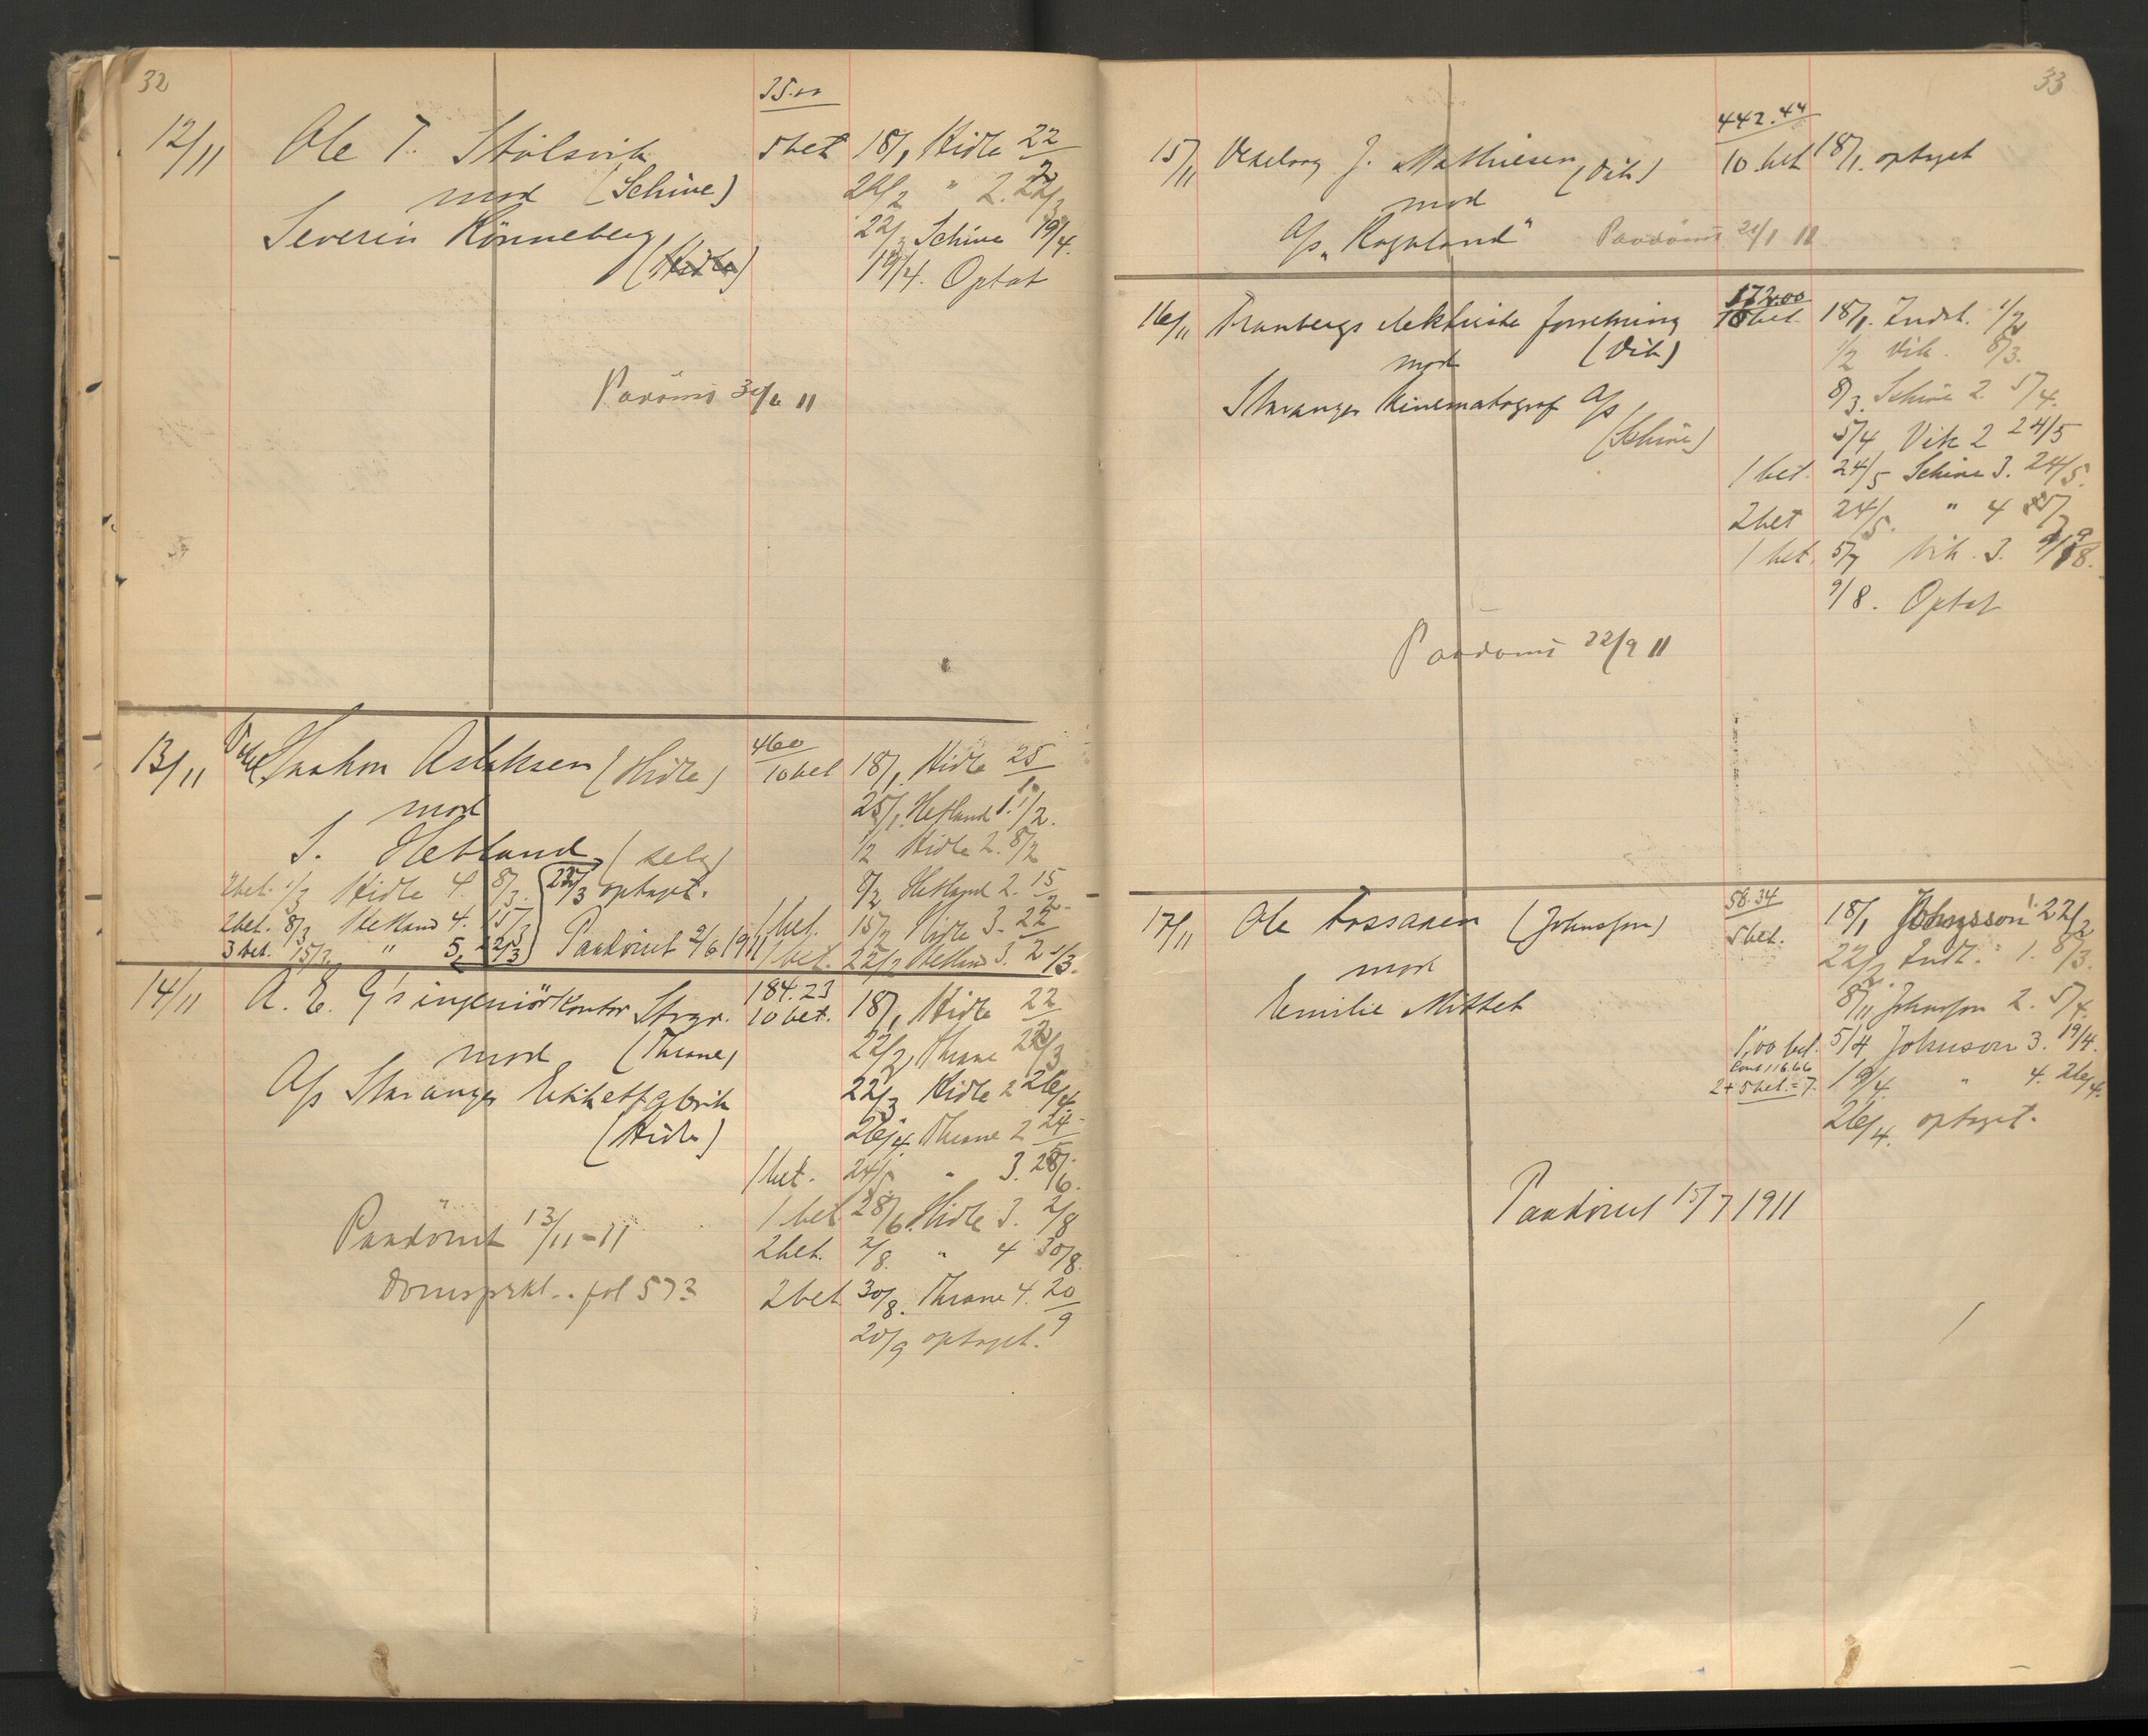 32
35.00
12/11 Ole T. Stölsvik 5 bet 18/1 Hidle 22/2
mod (Schive) 22/2 " 2. 22/3
Severin Rönneberg 22/3 Schive 19/4.
(Hidle) 19/4. Optat
Paadömt 30/6 11
13/11 Aslaksen (Hidle) 460 10 bet 18/1 Hidle 25/1
mod 25/1 Hetland 1. 1/2.
S. Hetland (selv) 1/2 Hidle 2. 8/2
2 bet. 1/3 Hidle 4. 8/3. 22/3 optaget. 8/2 Hetland 2. 15/2
2 bet. 8/3 Hetland 4. 15/3 1 bet. 15/2 Hidle 3. 22/2
3 bet. 15/3 " 5. 22/3 Paadömt 2/6 1911 1 bet. 22/2 Hetland 3. 1/3.
14/11 A. E. G's ingeniörkontor Stvgr. 184.23 10 bet. 18/1 Hidle 22/2
mod (Thrane) 22/2 Thrane 22/3
A/s Stavanger Etikettfabrik 22/3 Hidle 2 26/4
(Hidle) 26/4. Thrane 2 24/5
1 bet. 24/5 " 3. 28/6.
1 bet 28/6 Hidle 3. 2/8
Paadömt 13/11-11 2 bet. 2/8. " 4 30/8.
Domsprkl.. fol 573 2 bet 30/8. Thrane 4. 20/9
20/9 optaget.
33
442.44
15/11 J. Mathiesen (Vik) 10 bet 18/1. optaget
mod
A/s "Rogaland" Paadömt 21/1 11
172.00
16/11 Tranbergs elektriske forretning 10 bet. 18/1. Indst. 1/2
mod (Vik) 1/2 Vik. 8/3.
Stavanger Kinematograf A/s 8/3. Schive 2. 5/4.
(Schive) 5/4 Vik 2 24/5
1 bet. 24/5 Schive 3. 24/5.
2 bet 24/5. " 4 5/7
1 bet. 5/7 Vik. 3. 9/8.
9/8. Optat
Paadömt 22/9 11
58.34
17/11 Ole Fossanen (Johnsson) 5 bet. 18/1 Johnsson 22/2
mod 22/2. Indst. 1. 8/3.
Emilie Mittet 8/11 Johnsson 2. 5/4.
1,00 bet. 5/4 Johnson 3. 19/4.
2 + 5 bet. = 7. 19/4. " 4. 26/4.
26/4. optaget.
Paadömt 15/7 1911